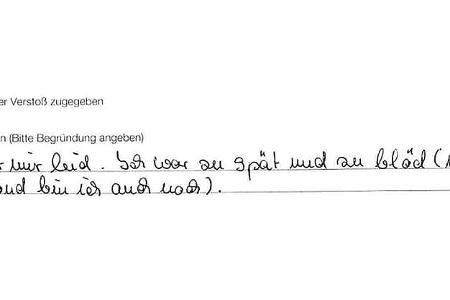 er Verstoß zugegeben
n (Bitte Begründung angeben)
mir leid. Ich war zu spät und zu blöd (
nd bin ich auch noch).